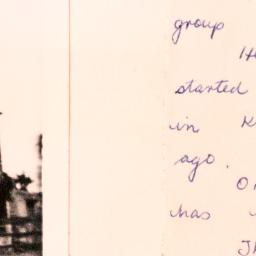 group
started
in K
ago.
has